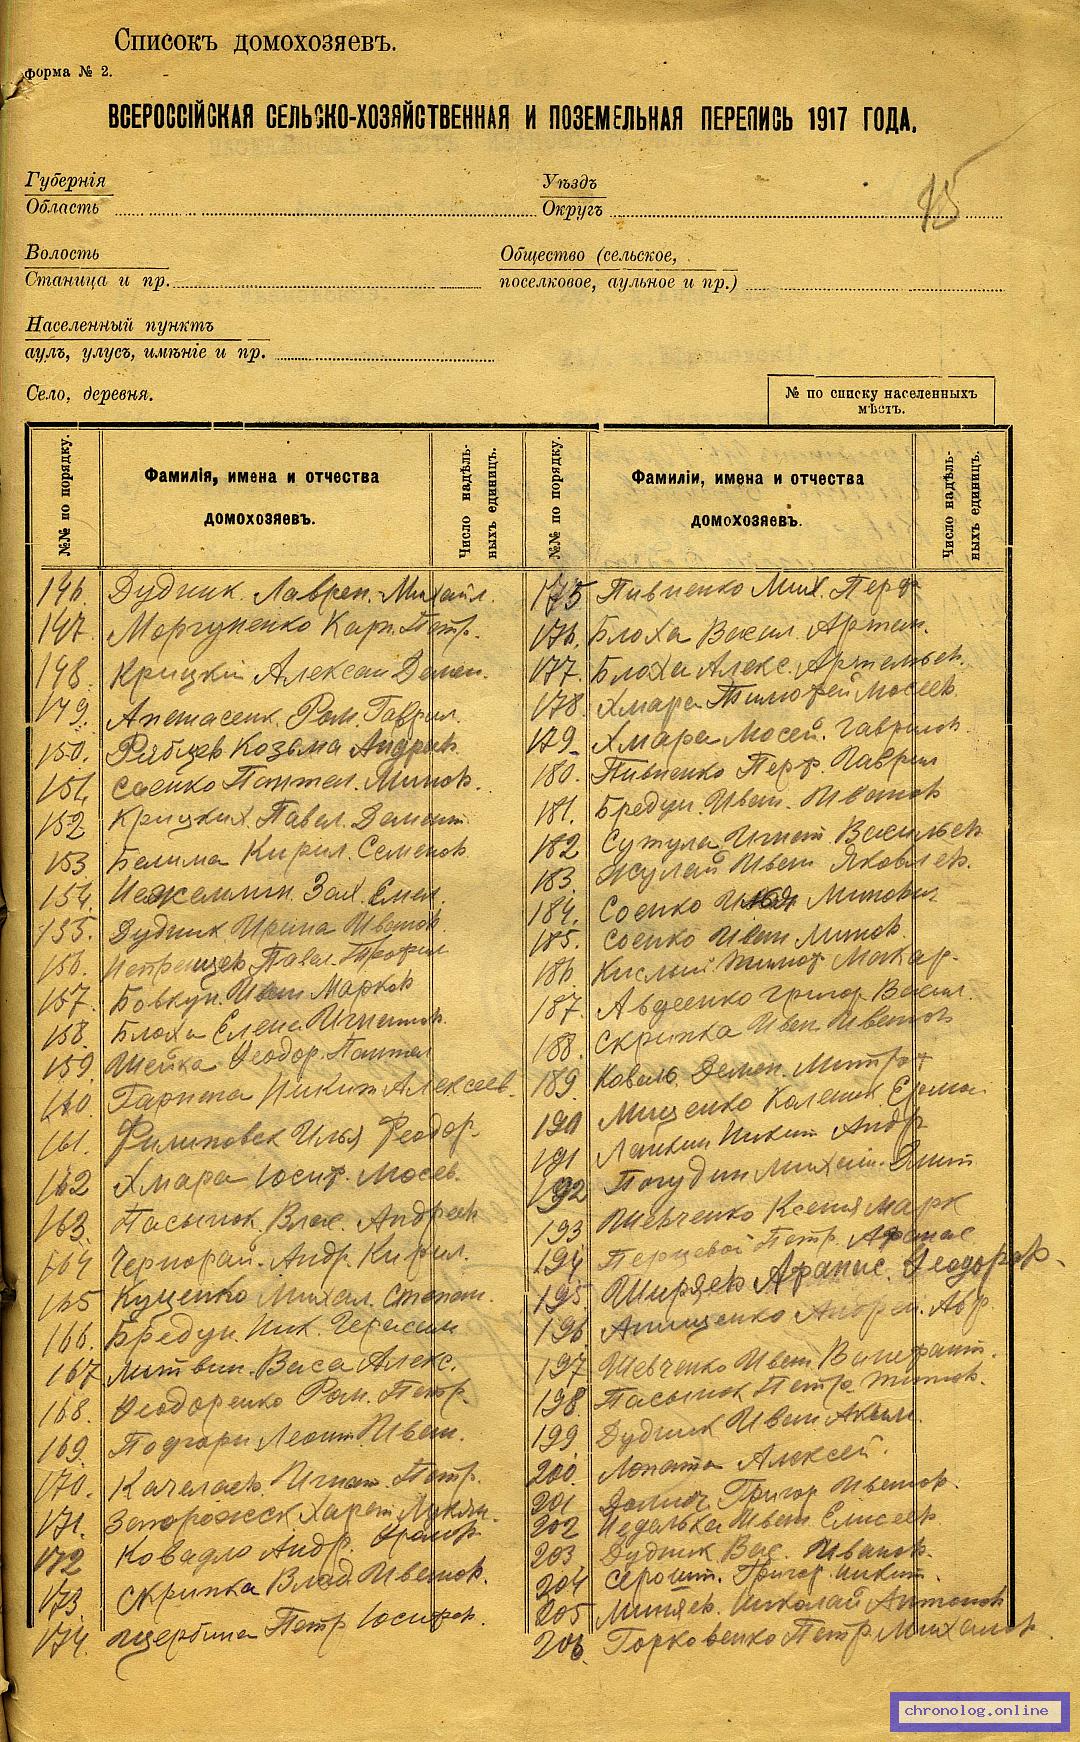 Списокъ домохозяевъ.
форма № 2.
ВСЕРОССІЙСКАЯ СЕЛЬСКО-ХОЗЯЙСТВЕННАЯ И ПОЗЕМЕЛЬНАЯ ПЕРЕПИСЬ 1917 ГОДА.
Губернія
Область
Уѣздъ
Округъ
Волость
Станица и пр.
Общество (сельское,
поселковое, аульное и пр.)
Населенный пунктъ
аулъ, улусъ, имѣніе и пр.
Село, деревня.
№ по списку населенныхъ
мѣстъ.
№№ по порядку.
Фамилія, имена и отчества
домохозяевъ.
Число надѣль-
ныхъ единицъ.
№№ по порядку.
Фамиліи, имена и отчества
домохозяевъ.
Число надѣль-
ныхъ единицъ.
146. Дудник Лаврен. Михайл.
147. Моргуненко Карп. Петр.
148. Крицкій Алексан Демен.
149. Апанасенк. Ром. Гаврил.
150. Рябцев Козьма Андрив
151. Соенко Пантел. Минов.
152 Крицких. Павел. Демент
153. Белима Кирил. Семенов
154. Зах. Емел.
155. Дудник Ирина Иванов.
156. Павел. Трофил
157. Бовкун. Иван Марков
158. Блоха Елена Игнатов.
159. Шейка Феодор. Пантел
160. Гарпена Никит Алексеев.
161. Филиповск Илья Феодор.
162 Хмара Іосиф. Мосев.
163. Пасынок Влас. Андреев
164 Чернорай. Андр. Кирил.
165 Куценко Михал. Степан.
166. Бредун. Ник. Герасим
167 Литвин. Васа Алекс.
168. Феодоренко Ром. Петр.
169. Подгорн Леонт. Иван.
170. Качелаев. Игнат. Петр.
171. Запорожск Харет. Лукян.
172 Ковадло Андр.
173. Скрипка Влад. Иванов.
174. Щербина Петр Іосифов.
175 Пивненко Мих. Перф
176. Блоха Васил. Артем.
177. Блоха Алекс. Артемьев.
178. Хмара Тимофей Мосеев
179. Хмара Мосей. Гаврилов
180. Пивненко Перф. Гаврил
181. Бредун. Иван. Иванов
182 Сутула Игнат Васильев
183. Жулай Иван Яковлев.
184. Соенко Илья Минович
185. Соенко Иван Минов.
186. Кислый Тимоф Макар.
187. Авдеенко Григор Васил.
188. Скрипка Иван Иванов
189. Коваль. Демен. Митроф
190 Мищенко Каленик Ерма
191 Лапкин Никит Андр
192 Погудин Михаил. Дмит
193 Шевченко Ксения Марк
194 Перцевой Петр. Афанас
195. Ширяев Афанас. Феодоров.
196 Анищенко Андрей. Авр.
197 Шевченко Иван Ванифант.
198. Пасынок Петр. Тимов.
199 Дудник Иван Аким.
200. Лопата Алексей.
201 Григор Иванов.
202 Недалька Иван Елисеев
203. Дудник Вас. Иванов.
204 Серошт. Григор Никит.
205 Миняев. Николай Антонов
206. Горковенко Петр Михалов.
chronolog.online